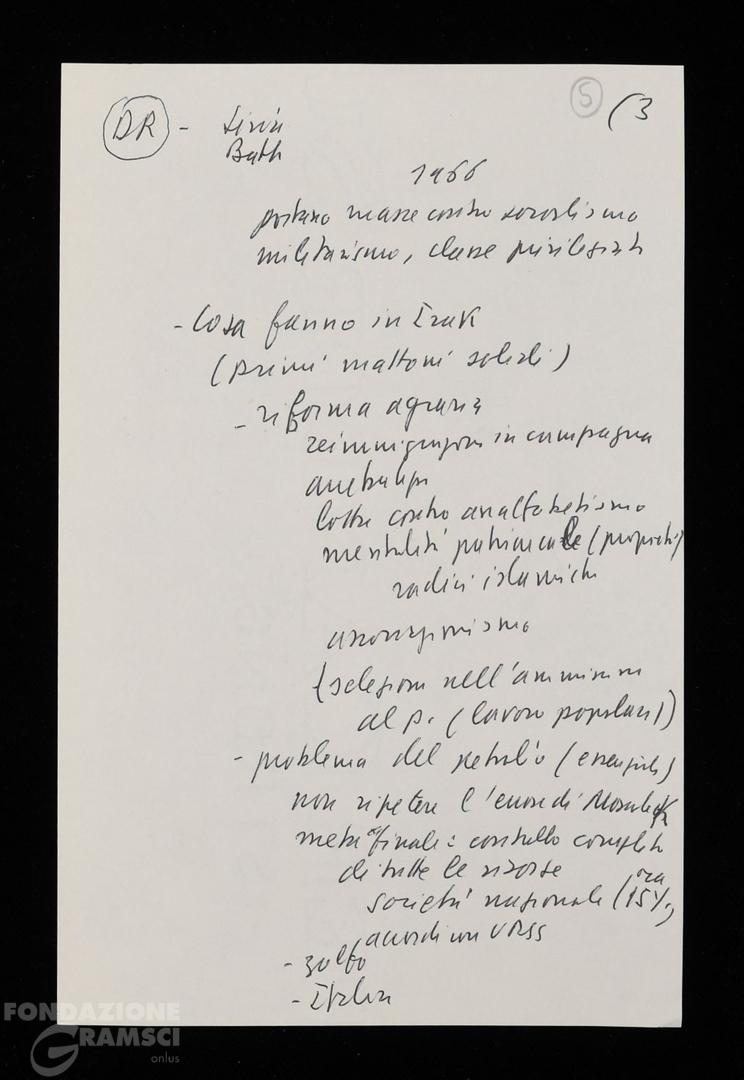 5 (3
DR - Siria
Bath
1966
portano masse contro socialismo
militarismo, classe privilegiata
- Cosa fanno in Irak
(primi mattoni solidi)
- riforma agraria
reimmigrazione in campagna
lotta contro analfabetismo
mentalità (proprietà)
radici islamiche
associazionismo
(selezione nell'ammin
al p. (lavoro popolare))
- problema del petrolio (essenziale)
non ripetere l'errore di Mossadek
meta finale: controllo completo
di tutte le risorse
società nazionale (ora 15%)
accordi con URSS
- zolfo
- Italia
FONDAZIONE
GRAMSCI
onlus